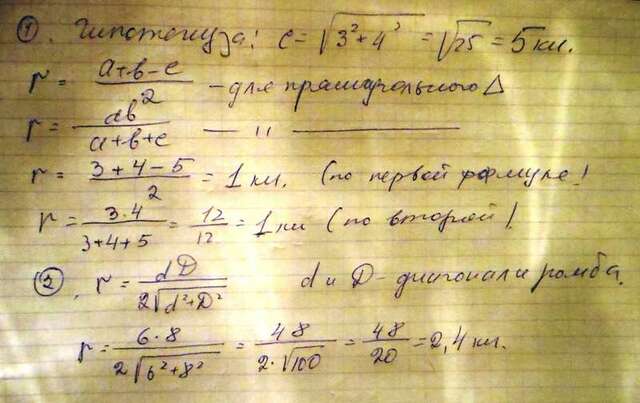 1). Гипотенуза: c = √3²+4² = √25 = 5 км.
r = (a+b-c)/2 - для прямоугольного Δ
r = ab/(a+b+c) — " —
r = (3+4-5)/2 = 1 км. (по первой формуле!
r = 3·4/(3+4+5) = 12/12 = 1 км (по второй!
2). r = dD/(2√d²+D²) d и D - диагонали ромба.
r = 6·8/(2√6²+8²) = 48/(2·√100) = 48/20 = 2,4 км.